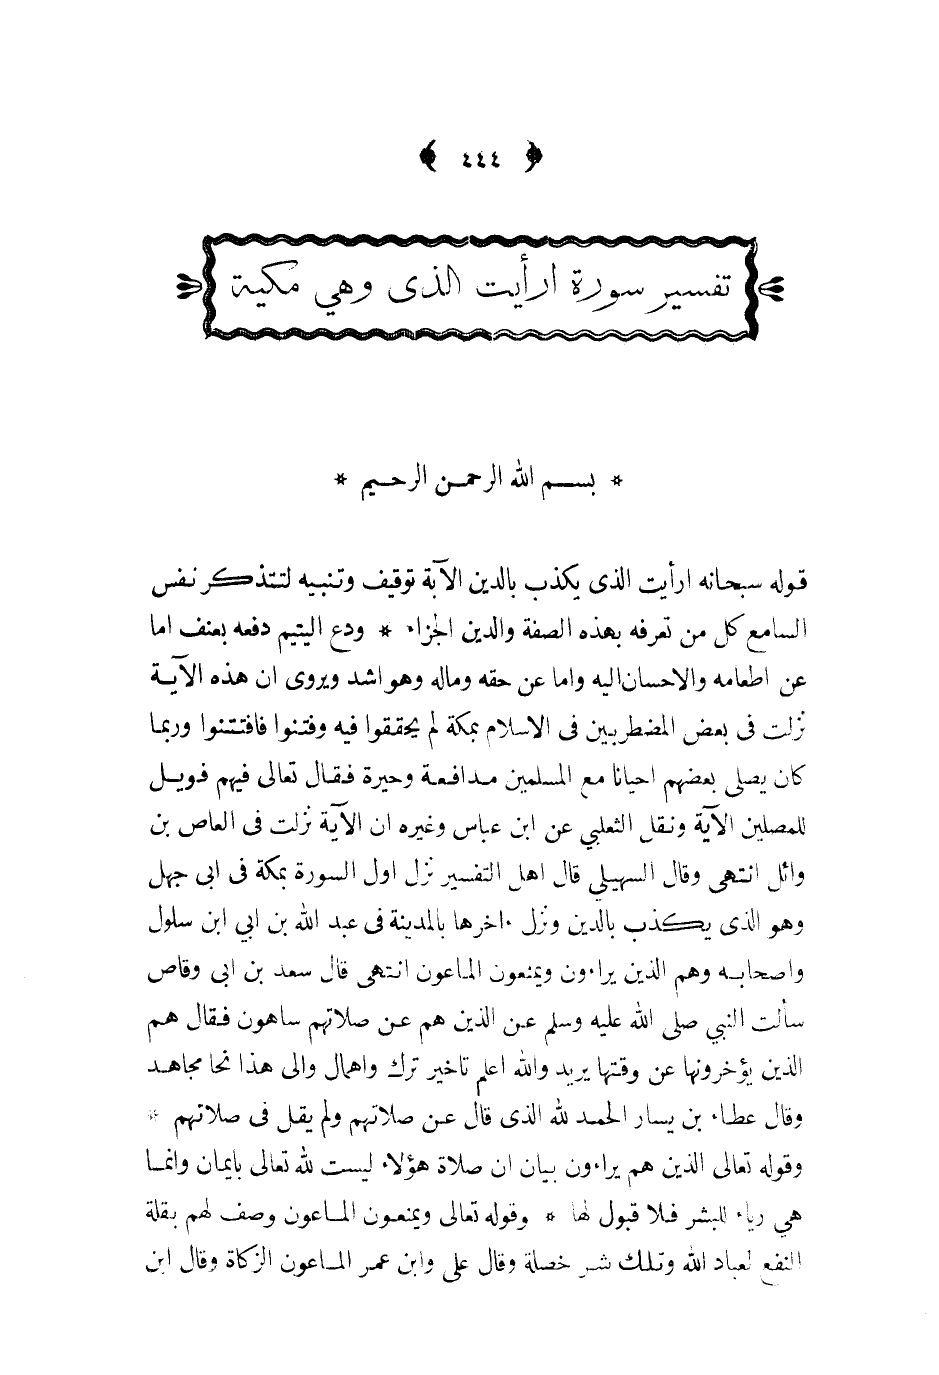 ﴿ ٤٤٤ ﴾
تفسير سورة ارأيت الذى وهي مكية
* بسم الله الرحمن الرحيم *
قوله سبحانه ارأيت الذى يكذب بالدين الآية توقيف وتنبيه لتتذكر نفس
السامع كل من تعرفه بهذه الصفة والدين الجزاء * ودع اليتيم دفعه بعنف اما
عن اطعامه والاحسان اليه واما عن حقه وماله وهو اشد ويروى ان هذه الآية
نزلت فى بعض المضطربين فى الاسلام بمكة لم يحققوا فيه وفتنوا فافتتنوا وربما
كان يصلى بعضهم احيانا مع المسلمين مدافعة وحيرة فقال تعالى فيهم فويل
للمصلين الآية ونقل الثعلبي عن ابن عباس وغيره ان الآية نزلت فى العاص بن
وائل انتهى وقال السهيلي قال اهل التفسير نزل اول السورة بمكة فى ابى جهل
وهو الذى يكذب بالدين ونزل ءاخرها بالمدينة فى عبد الله بن ابي ابن سلول
واصحابه وهم الذين يراءون ويمنعون الماعون انتهى قال سعد بن ابى وقاص
سألت النبي صلى الله عليه وسلم عن الذين هم عن صلاتهم ساهون فقال هم
الذين يؤخرونها عن وقتها يريد والله اعلم تاخير ترك واهمال والى هذا نحا مجاهد
وقال عطاء بن يسار الحمد لله الذى قال عن صلاتهم ولم يقل فى صلاتهم *
وقوله تعالى الذين هم يراءون بيان ان صلاة هؤلاء ليست لله تعالى بايمان وانما
هي رياء للبشر فلا قبول لها * وقوله تعالى ويمنعون الماعون وصف لهم بقلة
النفع لعباد الله وتلك شر خصلة وقال على وابن عمر الماعون الزكاة وقال ابن